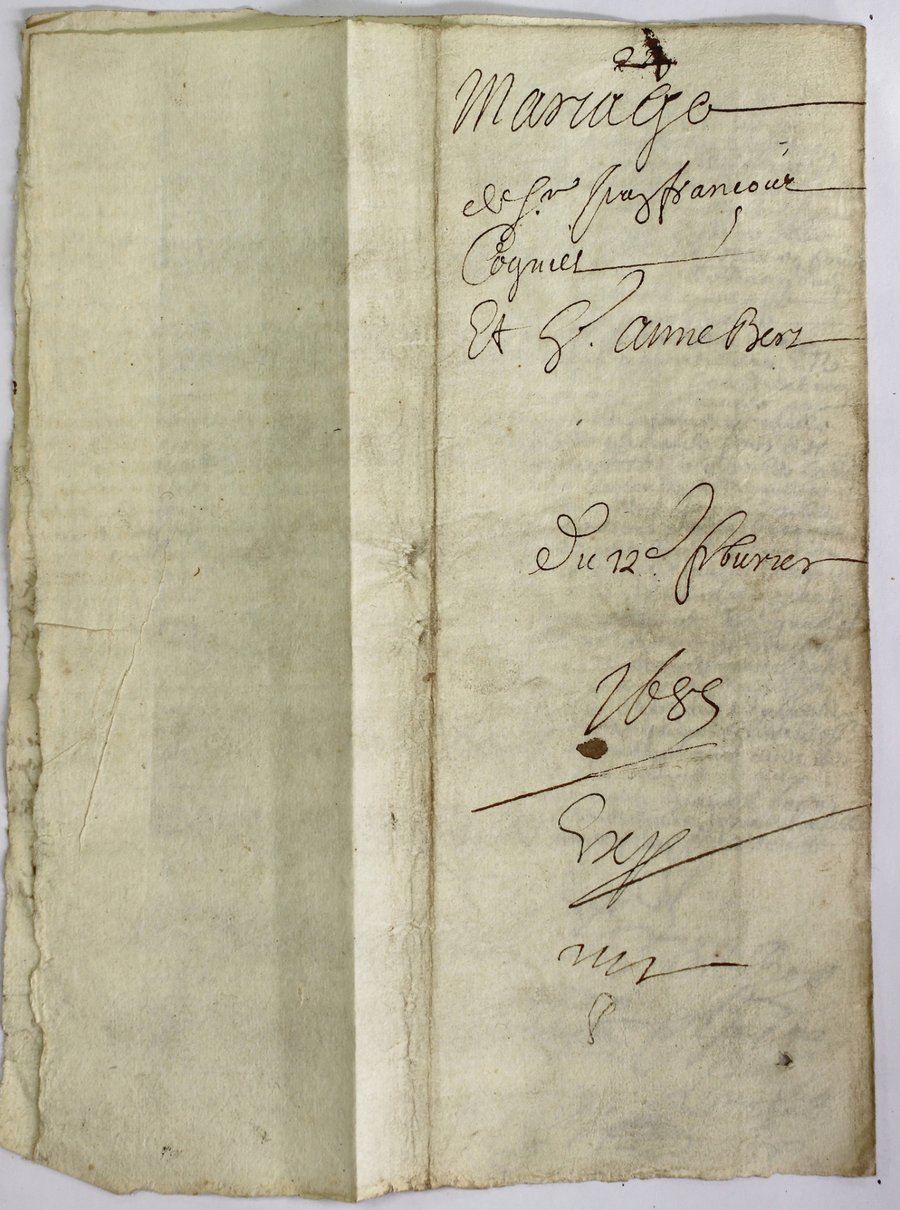 22
Mariage
de Sr. francois
Cogniet
Et Dt. anne Bert
Du 12e. febvrier
1685
Exp
8